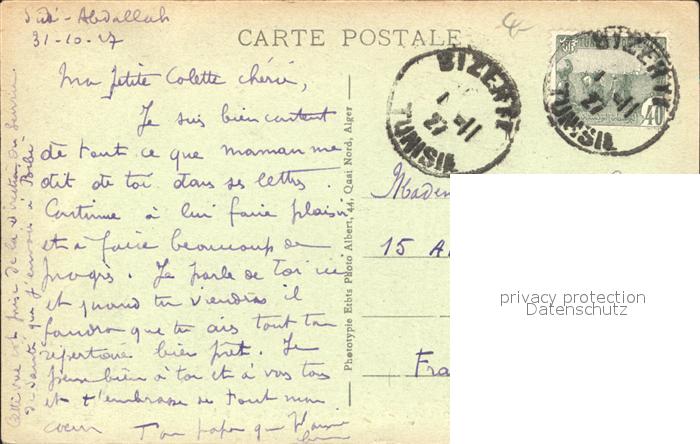 Sidi-Abdallah
31-10-27
CARTE POSTALE
BIZERTE
1 -11
27
TUNISIE
BIZERTE
1 -11
27
TUNISIE
40
Ma petite Colette chérie,
Je suis bien content
de tout ce que maman me
dit de toi dans ses lettres.
Continue à lui faire plaisir
et à faire beaucoup de
progrès. Je parle de toi ici
et quand tu viendras il
faudra que tu ais tout ton
répertoire bien prêt. Je
pense bien à toi et à vos tous
et t'embrasse de tout mon
coeur Ton papa qui t'aime
Cette vue est prise de la direction du Service
de Santé que j'envoie à Bébé
Phototypie Etbts Photo Albert, 44, Quai Nord, Alger
Madem
15 A
Fra
privacy protection
Datenschutz